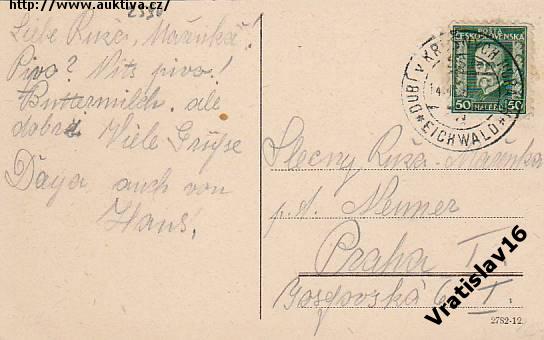 www.auktiva.cz
2330
Liebe Ruža, Mařenka!
Pivo? Nits pivo!
Buttermilch, ale
dobré. Viele Grüße
Daya auch von
Hans.
POŠTA
ČESKOSLOVENSKÁ
50 HALÉŘŮ 50
DUBÍ V KR
EICHWALD
Slečny Ruža-Mařenka
p.d. Neumer
Praha
Josefovská 6
2782-12.
Vratislav16